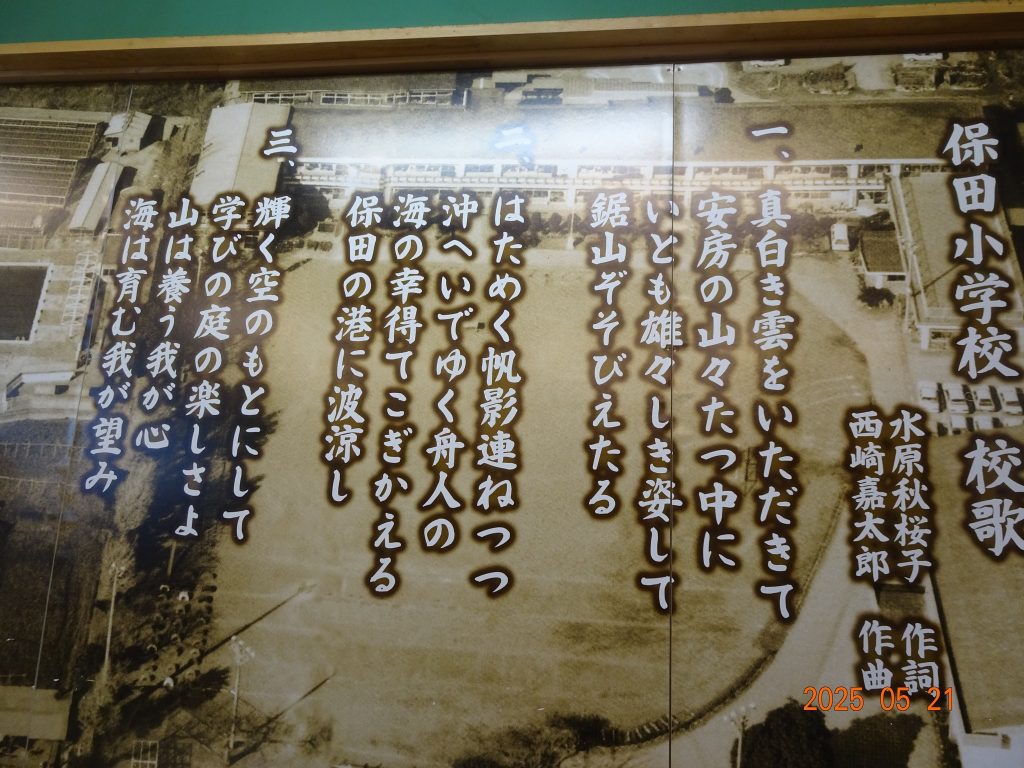 保田小学校 校歌
水原秋桜子 作詞
西崎嘉太郎 作曲
一、
真白き雲をいただきて
安房の山々たつ中に
いとも雄々しき姿して
鋸山ぞそびえたる
二、
はためく帆影連ねつつ
沖へいでゆく舟人の
海の幸得てこぎかえる
保田の港に波涼し
三、
輝く空のもとにして
学びの庭の楽しさよ
山は養う我が心
海は育む我が望み
2025 05 21